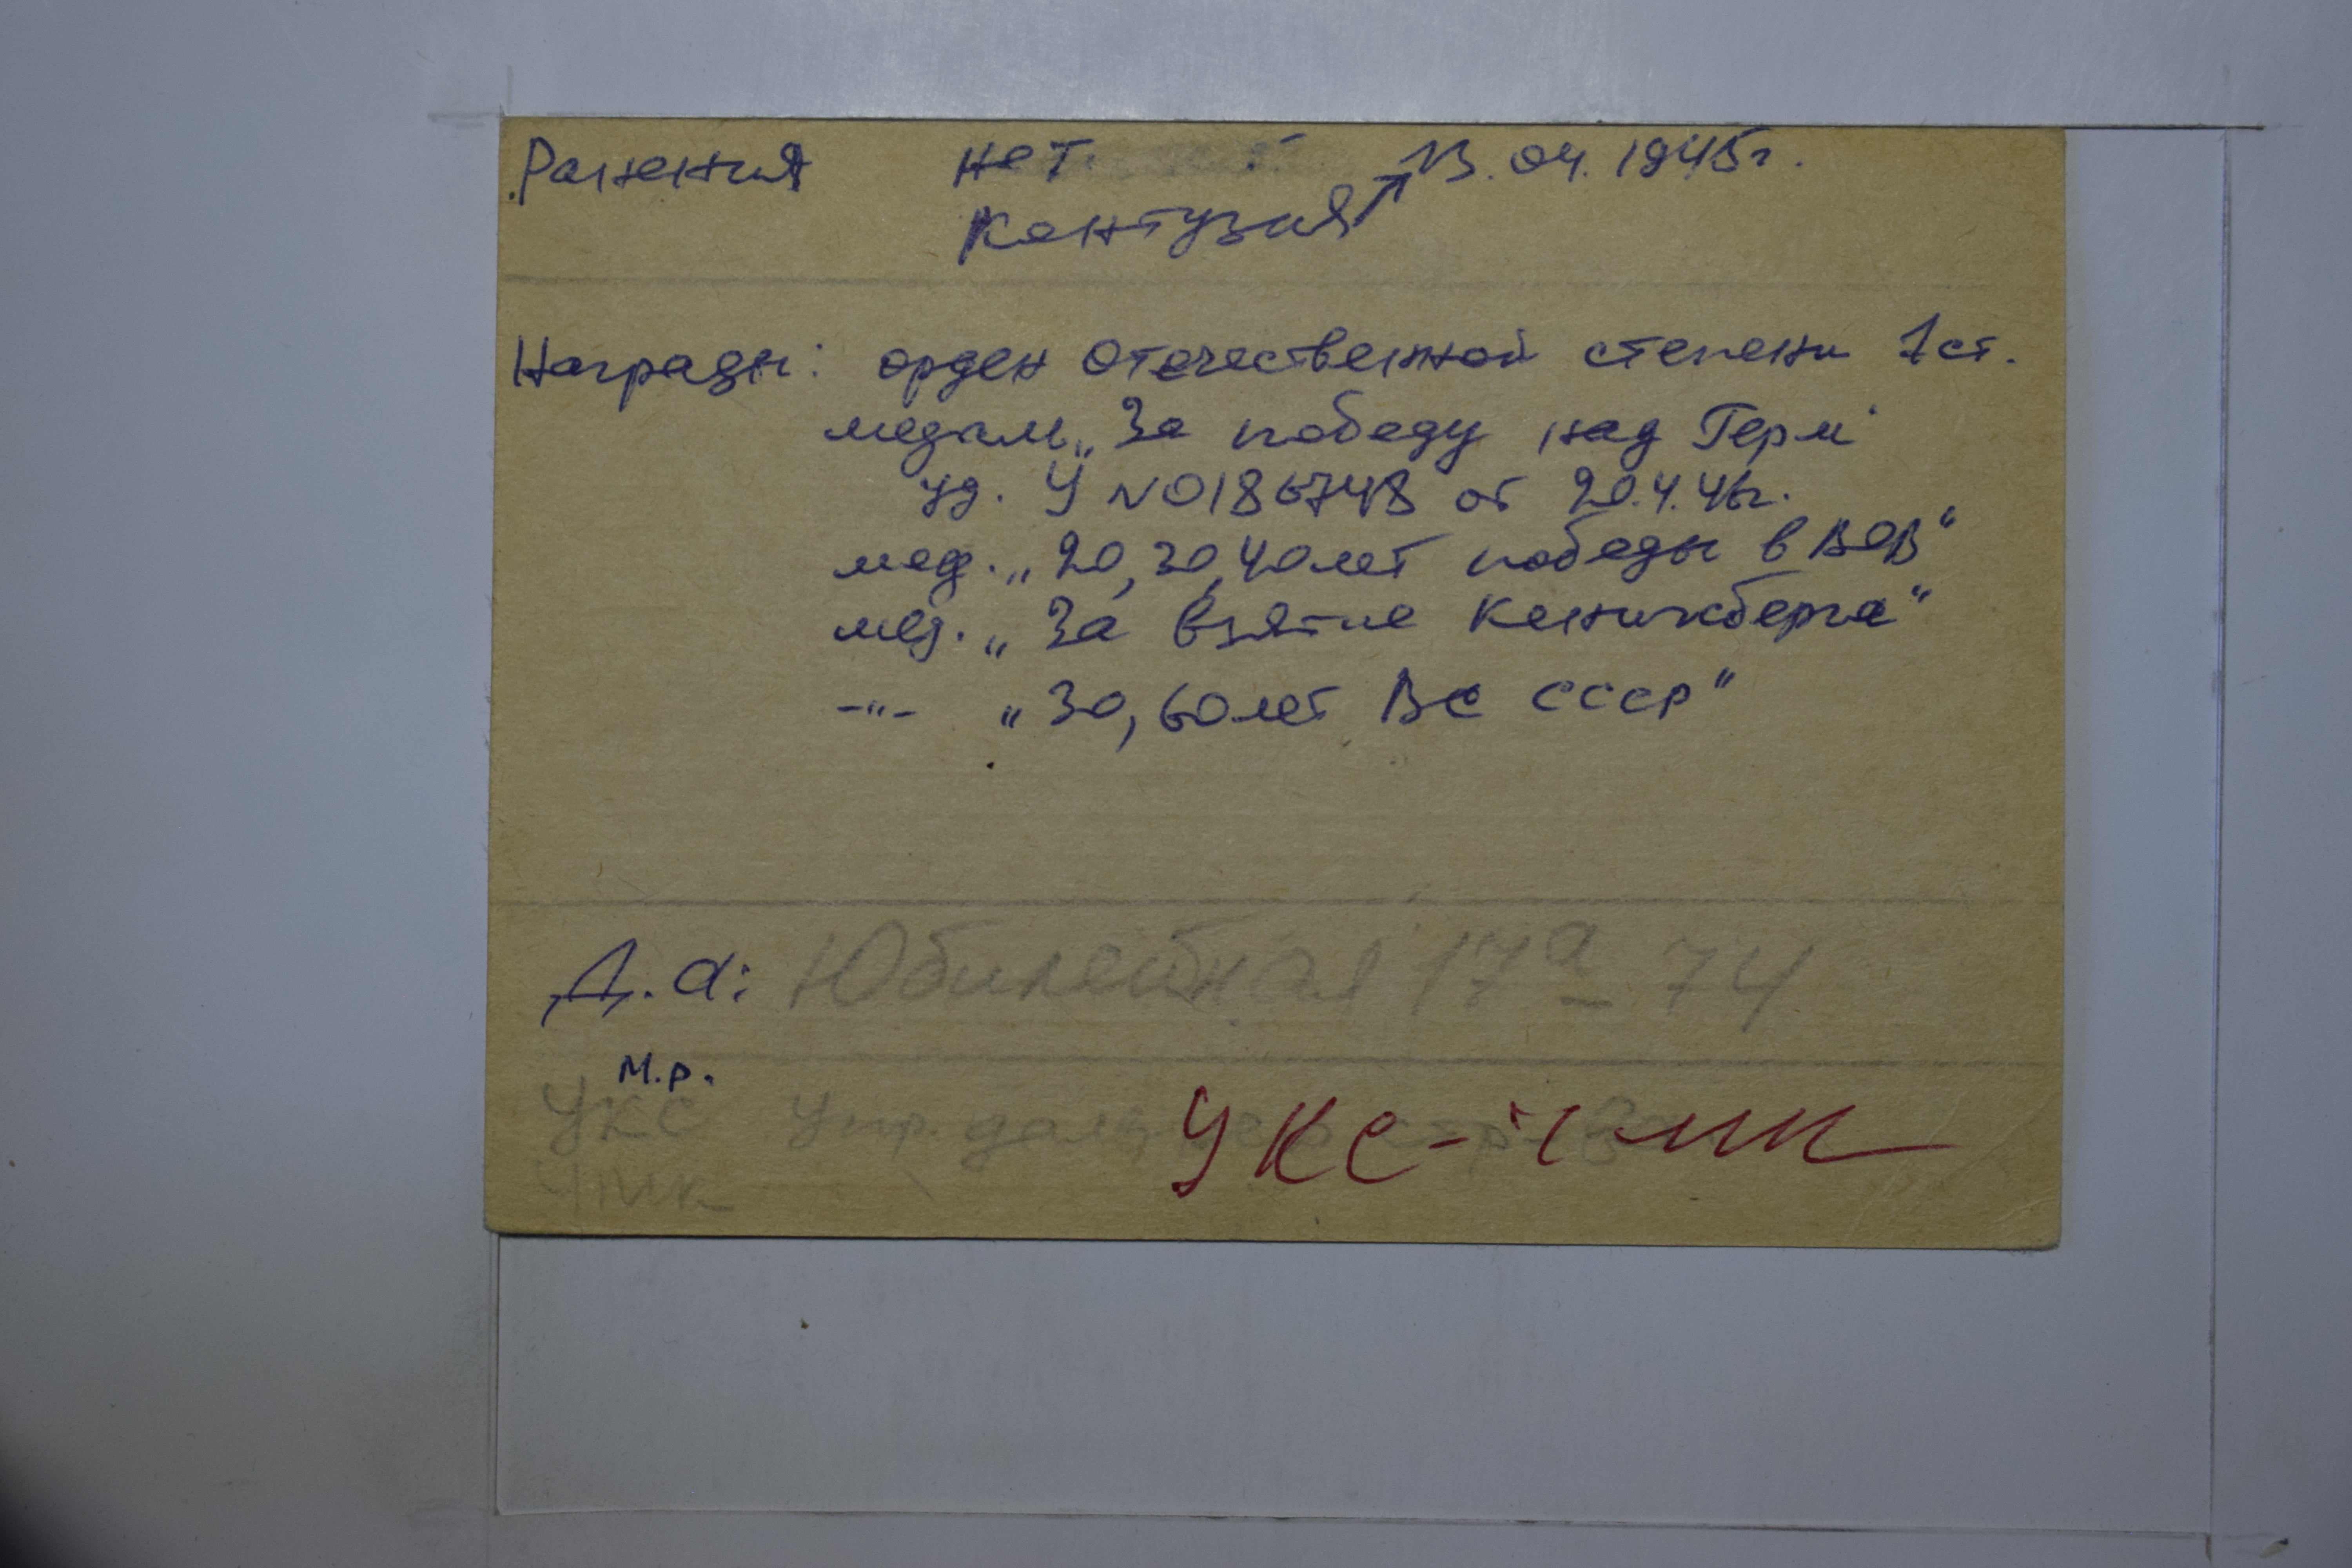 Ранения нет 13.04.1945г.
Контузия
Награды: орден Отечественной степени 1 ст.
медаль „За победу над Герм"
уд. У №0186748 от 20.4.46г.
мед. „20, 30, 40 лет победы в ВОВ"
мед. „За взятие Кенигсберга"
-"- „30, 60 лет ВС СССР"
Д.а: Юбилейная 17а - 74
м.р.
УКС Упр.
УКС- ЧМК
ЧМК